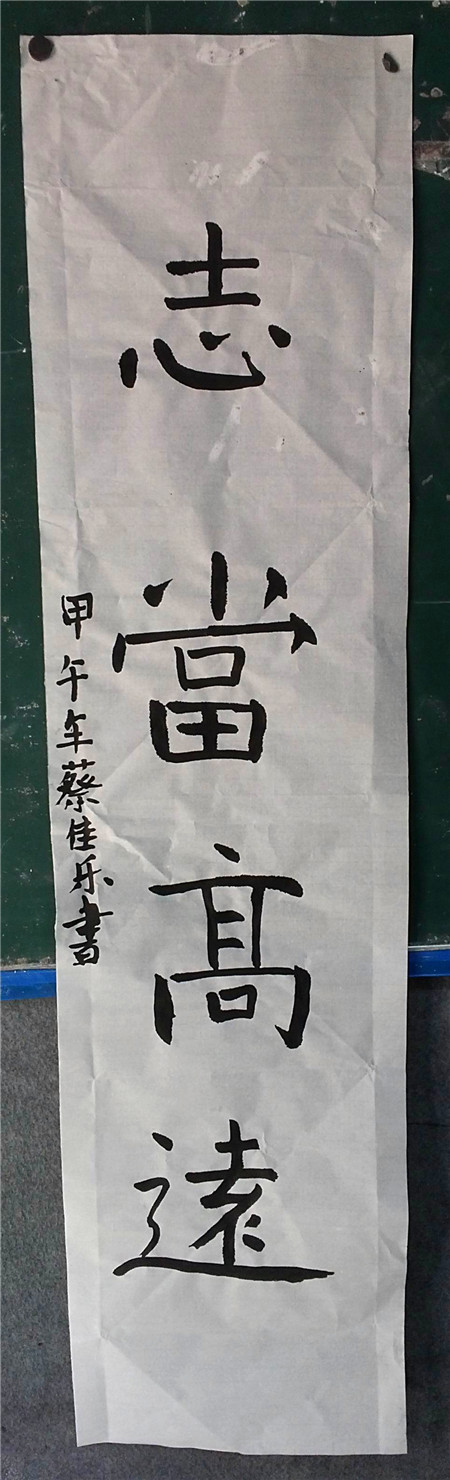 志當高遠
甲午年蔡佳乐書